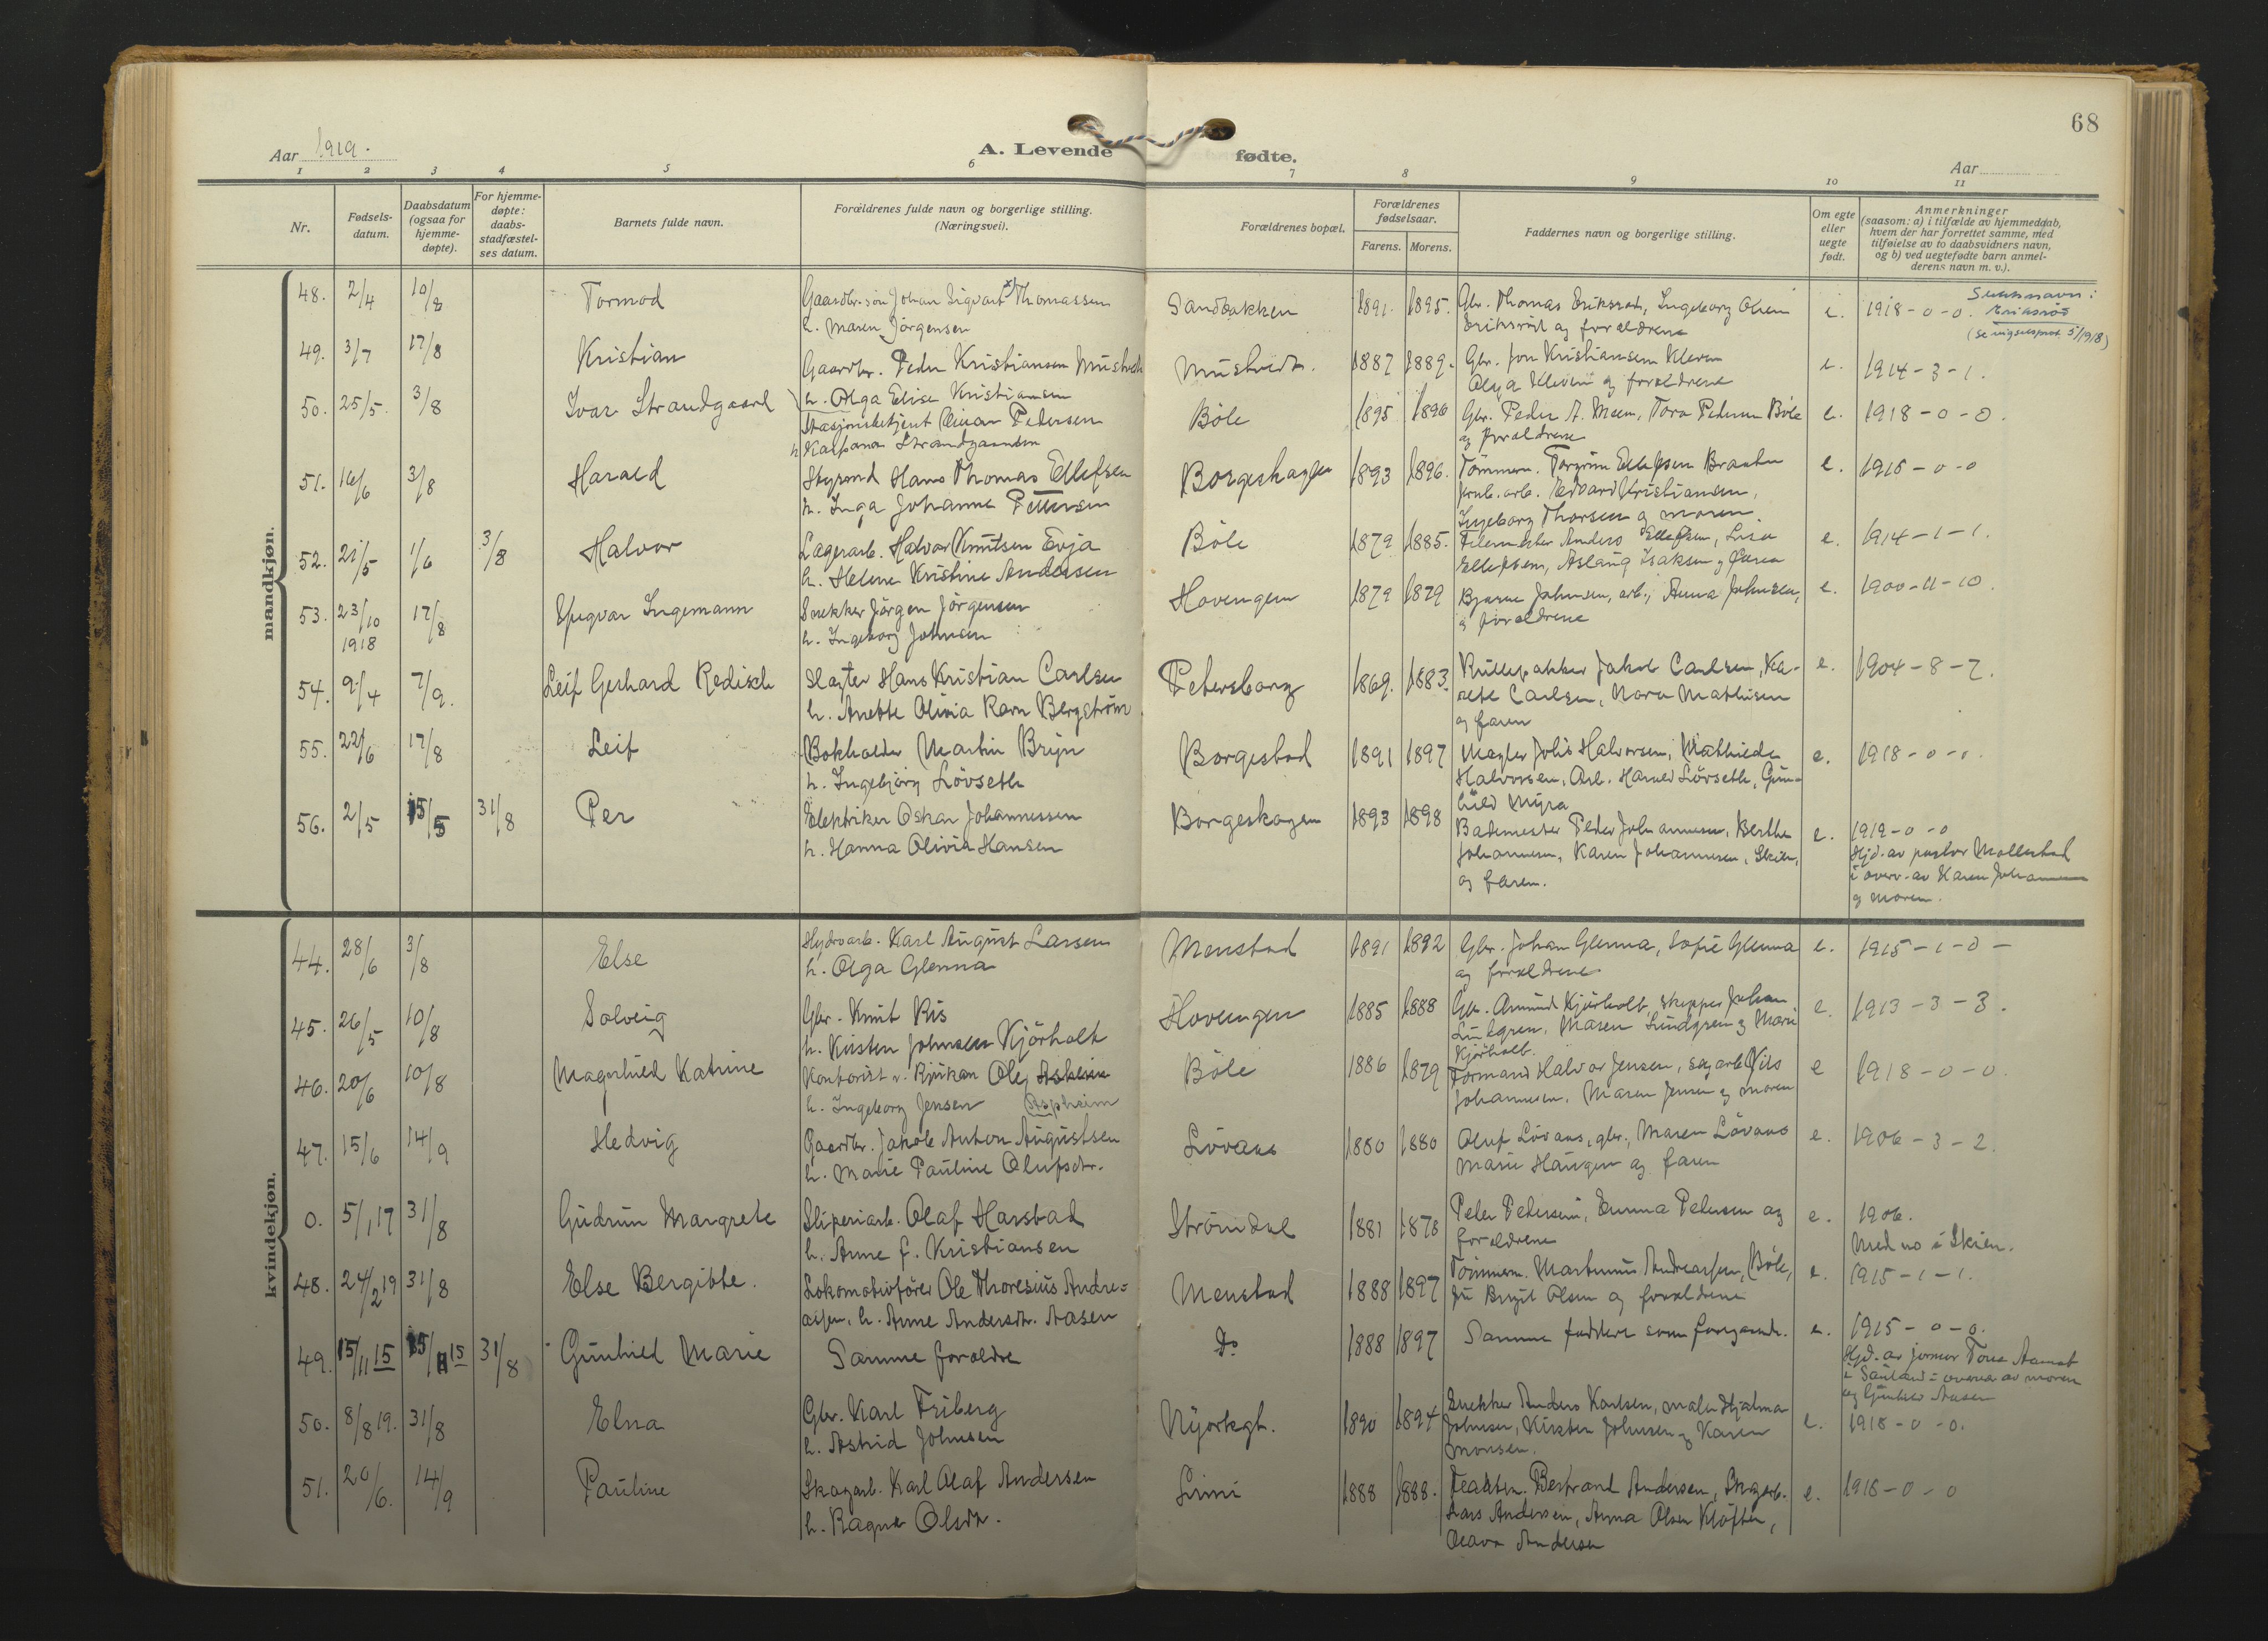 68
Aar 1919.
A. Levende fødte.
Aar
1 2 3 4 5 6 7 8 9 10 11
Nr.
Fødsels-
datum.
Daabsdatum
(ogsaa for
hjemme-
døpte).
For hjemme-
døpte:
daabs-
stadfæstel-
ses datum.
Barnets fulde navn.
Forældrenes fulde navn og borgerlige stilling.
(Næringsvei).
Forældrenes bopæl.
Forældrenes
fødselsaar.
Farens. Morens.
Faddernes navn og borgerlige stilling.
Om egte
eller
uegte
født.
Anmerkninger
(saasom: a) i tilfælde av hjemmedaab,
hvem der har forrettet samme, med
tilføielse av to daabsvidners navn,
og b) ved uegtefødte barn anmel-
derens navn m. v.).
mandkjøn.
48. 2/4 10/8 Tormod Gaardbr. søn Johan Sigvart Thomassen Sandbakken 1891. 1895. Gbr. Thomas Eriksrød, Ingeborg Olsen e. 1918-0-0.
h. Maren Jørgensen
Eriksrød og forældrene
Eriksrød
49. 3/7 17/8 Kristian Gaardbr. Peder Kristiansen Mustvedt Mustvedt. 1887 1889. Gbr. Jon Kristiansen Kleven e. 1914-3-1.
h. Olga Elise Kristiansen
Olga Kleven og forældrene
50. 25/5. 3/8 Ivar Strandgaard Stasjonsbetjent Einar Petersen Bøle 1895 1896 Gbr. Peder A. Moen, Tora Pedersen Bøle e. 1918-0-0.
og forældrene
51. 16/6 3/8 Harald Styrmd Hans Thomas Ellefsen Borgeskogen 1893 1896. Tømmerm. Torgrim Ellefsen e. 1915-0-0
h. Inga Johanne Pettersen
arb. Edvard Kristiansen,
Ingeborg Thorsen og moren
52. 21/5 1/6 3/8 Halvor Lagerarb. Halvor Knutsen Evja Bøle 1879 1885. Filermester Anders Ellefsen, Lisa e. 1914-1-1.
h. Helene Kristine Andersen
Ellefsen, Aslaug Isaksen og faren
53. 23/10 1918 17/8 Yngvar Ingemann Snekker Jørgen Jørgensen Hovengen 1879 1879 Bjarne Johnsen, arb., Anna Johnsen, e. 1900-11-10.
h. Ingeborg Johnsen
og forældrene
54. 9/4 7/9. Leif Gerhard Redisch Slagter Hans Kristian Carlsen Petersborg 1869. 1883. Rullepakker Jakob Carlsen, Ka- e. 1904-8-7.
h. Anette Olivia Ravn Bergstrøm
rete Carlsen, Nora Mathisen
og faren
55. 22/6 17/8 Leif Bokholder Martin Bryn Borgestad 1891 1897 Magter Johs Halvorsen, Mathilde e. 1918-0-0.
h. Ingebjørg Løvseth
Halvorsen, Arb. Harald Løvseth, Gun-
hild Myra
56. 2/5 15/5 31/8 Per Elektriker Oskar Johannessen Borgeskogen 1893 1898 Bademester Peder Johannessen, Berthe e. 1919-0-0
h. Hanna Olivia Hansen
Johannesen, Karen Johannesen, Skien,
og faren.
Hjd. av pastor Mollestad
i overv. av Karen Johannesen
og moren.
kvindekjøn.
44. 28/6 3/8 Else Hydroarb. Karl August Larsen Menstad 1891 1892 Gbr. Johan Glenna, Sofie Glenna e. 1915-1-0-
h. Olga Glenna
og forældrene
45. 26/5 10/8 Solveig Gbr. Knut Ris Hovengen 1885 1888 Gbr. Amund Kjørholt, skipper Johan e. 1913-3-3.
h. Kirsten Johnsen Kjørholt
Lundgren, Maren Lundgren og Marie
Kjørholt.
46. 20/6 10/8 Magnhild Katrine Kontorist v. Rjukan Ole Bøle 1886 1879 Formand Halvor Jensen, sagarb. Nils e 1918-0-0.
h. Ingeborg Jensen Aspheim
Johannesen, Maren Jensen og moren
47. 15/6 14/9 Hedvig Gaardbr. Jakob Anton Augustsen Løvaas 1880 1880 Oluf Løvaas, gbr., Maren Løvaas e. 1906-3-2.
h. Marie Pauline Olufsdtr.
Marie Haugen og faren
0. 5/1 17 31/8 Gudrun Margrete Sliperiarb. Olaf Harstad Strømdal 1881 1878 Peder Pedersen, Emma Pedersen og e. 1906.
h. Anne f. Kristiansen
forældrene
Med no i Skien.
48. 24/2 19 31/8 Else Bergitte. Lokomotivfører Ole Thoresius Andre- Menstad 1888 1897 Tømmerm. Martinius Andreassen, Bøle, e. 1915-1-1.
assen, h. Anne Andersdtr. Aasen
Birgit Olsen og forældrene
49. 15/11 15 15/11 15 31/8 Gunhild Marie Samme forældre Do 1888 1897 Samme faddere som foregaaende. e. 1915-0-0.
Hjd. av jormor Tone Aamot
i Sauland i overvær av moren
og Gunhild Aasen
50. 8/8 19. 31/8 Elna Gbr. Karl Friberg Nyorkgt. 1890 1894 Snekker Anders Karlsen, maler Hjalmar e. 1918-0-0.
h. Astrid Johnsen
Johnsen, Kirsten Johnsen og Karen
Monsen.
51. 20/6. 14/9 Pauline Skogarb. Karl Olaf Andersen Limi 1888 1888. Bertrand Andersen, Skogarb. e. 1918-0-0
h. Ragna Olsdtr.
Lars Andersen, Anna Olsen Kløften,
Olava Andersen